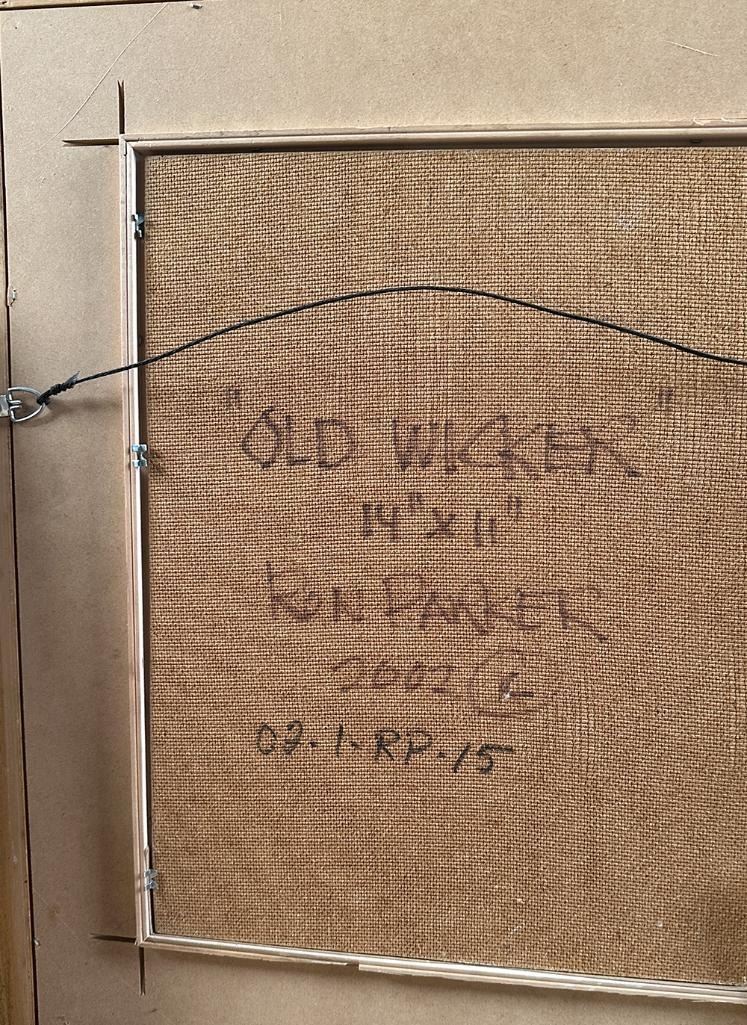 "OLD WICKER"
14" X 11"
RON PARKER
2002 ©
02.1.RP.15